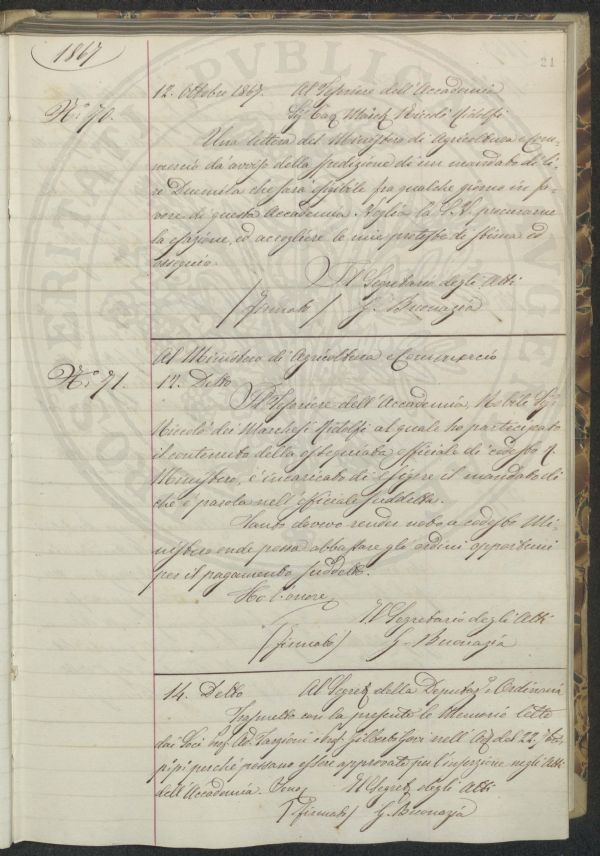 1867
21
N.° 70.
12. Ottobre 1867. Al Tesoriere dell'Accademia
Sig. Cav. March. Niccolò Ridolfi
Una lettera del Ministero di Agricoltura e Com-
mercio dà avviso della spedizione di un mandato di Li-
re Duemila che sarà esigibile fra qualche giorno in fa-
vore di questa Accademia. Voglia la S.V. procurarne
la esazione, ed accogliere le mie proteste di stima ed
ossequio.
Il Segretario degli Atti
(Firmato) G. Buonazia
Al Ministero di Agricoltura e Commercio
N.° 71.
12. Detto
Il Tesoriere dell'Accademia, Nobile Sig.
Niccolò dei Marchesi Ridolfi al quale ho partecipato
il contenuto della ossequiata officiale di codesto R.
Ministero, è incaricato di esigere il mandato di
che è parola nell'officiale suddetta.
Tanto devevo render noto a codesto Mi-
nistero onde possa abbassare gli ordini opportuni
per il pagamento suddetto.
Ho l'onore
Il Segretario degli Atti
(Firmato) G. Buonazia
14. Detto Al Segret. della Deputaz.e Ordinaria
Trasmetto con la presente le Memorie lette
dai Soci Prof. Ad. Targioni e Prof. Gilberto Govi nell'Ad. del 22,
perchè possano essere approvate per l'inserzione negli Atti
dell'Accademia. Il Segret. degli Atti
(Firmato) G. Buonazia